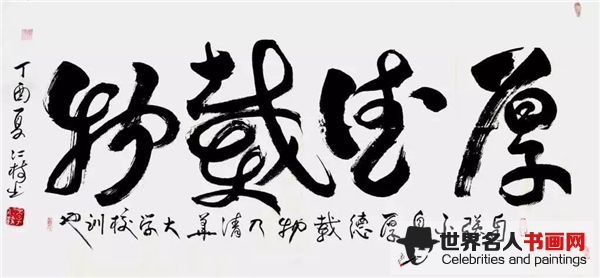 厚德載物
自强不息厚德載物乃清華大学校训也
丁酉夏
世界名人书画网
Celebrities and paintings